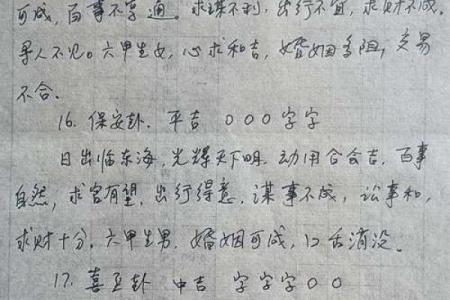 可成,百事不享通。求谋不利,出行不宜,求财不成。
寻人不见。六甲生女,心求和吉,婚姻多阻,交易
不合.
16. 保安卦. 平吉 000字字
日出临东海,光辉天下明. 动用合合吉. 百事
自然,求官有望,出行得意,谋事不成,讼事和,
求财十分.六甲生男.婚姻可成,口舌消没.
17. 喜至卦 中吉 字字字00